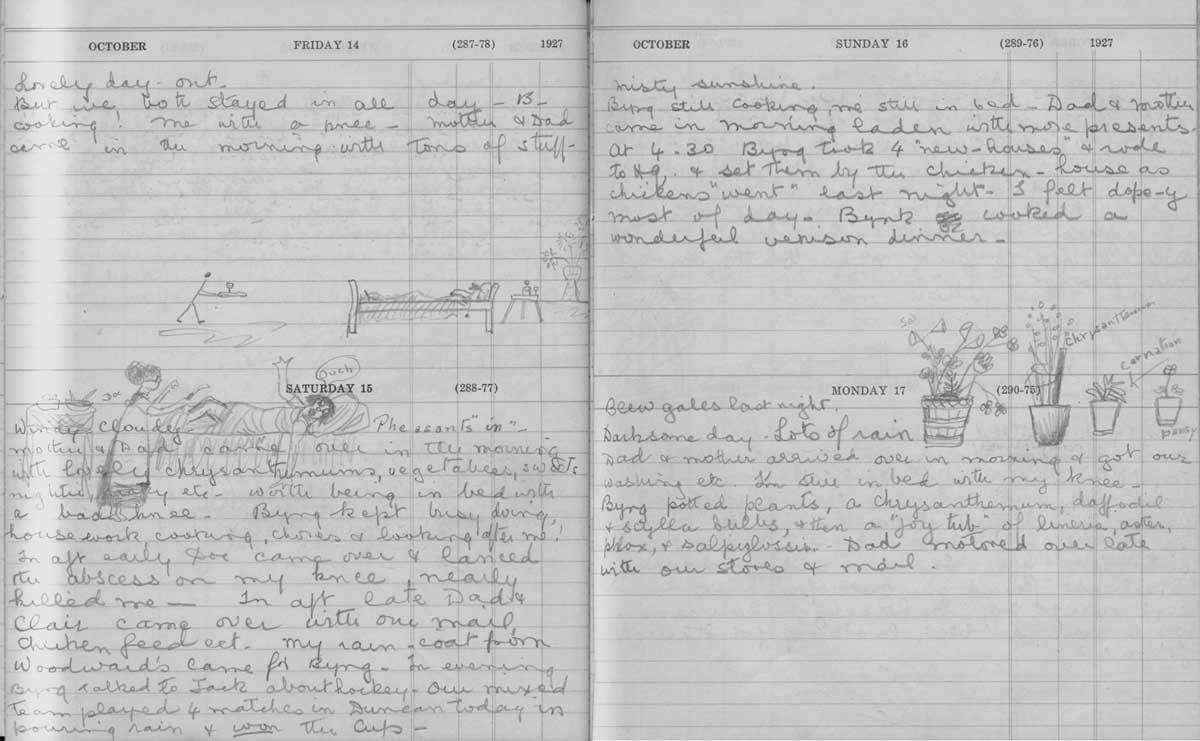 OCTOBER FRIDAY 14 (287-78) 1927
Lovely day - out -
But we both stayed in all day - B -
cooking! me with a knee - mother & Dad
came in the morning with tons of stuff -
SATURDAY 15 (288-77)
Ouch
Windy Cloudy - Pheasants "in" -
mother & Dad came over in the morning
with lovely chrysanthemums, vegetables, sweets
nightie, etc - worth being in bed with
a bad knee - Byng kept busy doing
housework, cooking, chores & looking after me!
In aft early Doc came over & lanced
the abscess on my knee, nearly
killed me - In aft late Dad &
Clair came over with our mail,
chicken feed ect. my rain-coat from
Woodward's came for Byng - In evening
Byng talked to Jack about hockey - Our mixed
team played 4 matches in Duncan today in
pouring rain & won the Cup -
OCTOBER SUNDAY 16 (289-76) 1927
Misty sunshine.
Byng still cooking, me still in bed - Dad & mother
came in morning laden with more presents
At 4.30 Byng took 4 "new-houses" & rode
to Hq. & set them by the chicken-house as
chickens "went" last night - I felt dope-y
most of day - Byng cooked a
wonderful venison dinner -
Chrysanthemum
carnation
pansy
MONDAY 17 (290-75)
Blew gales last night.
Darksome day - Lots of rain
Dad & mother arrived over in morning & got our
washing etc. I'm still in bed with my knee -
Byng potted plants, a chrysanthemum, daffodil
& scylla bulbs, & then a "joy tub" of lineria, aster,
phlox, & salpylossin - Dad motored over late
with our stores & mail.